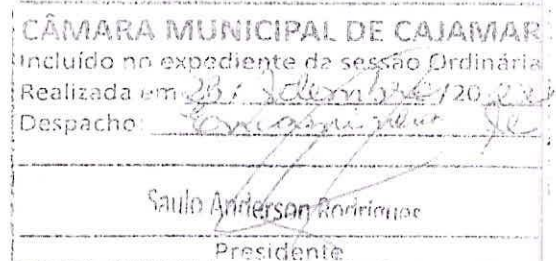 CÂMARA MUNICIPAL DE CAJAMAR
Incluído no expediente da sessão Ordinária
Realizada em /20
Despacho:
Saulo Anderson Rodrigues
Presidente